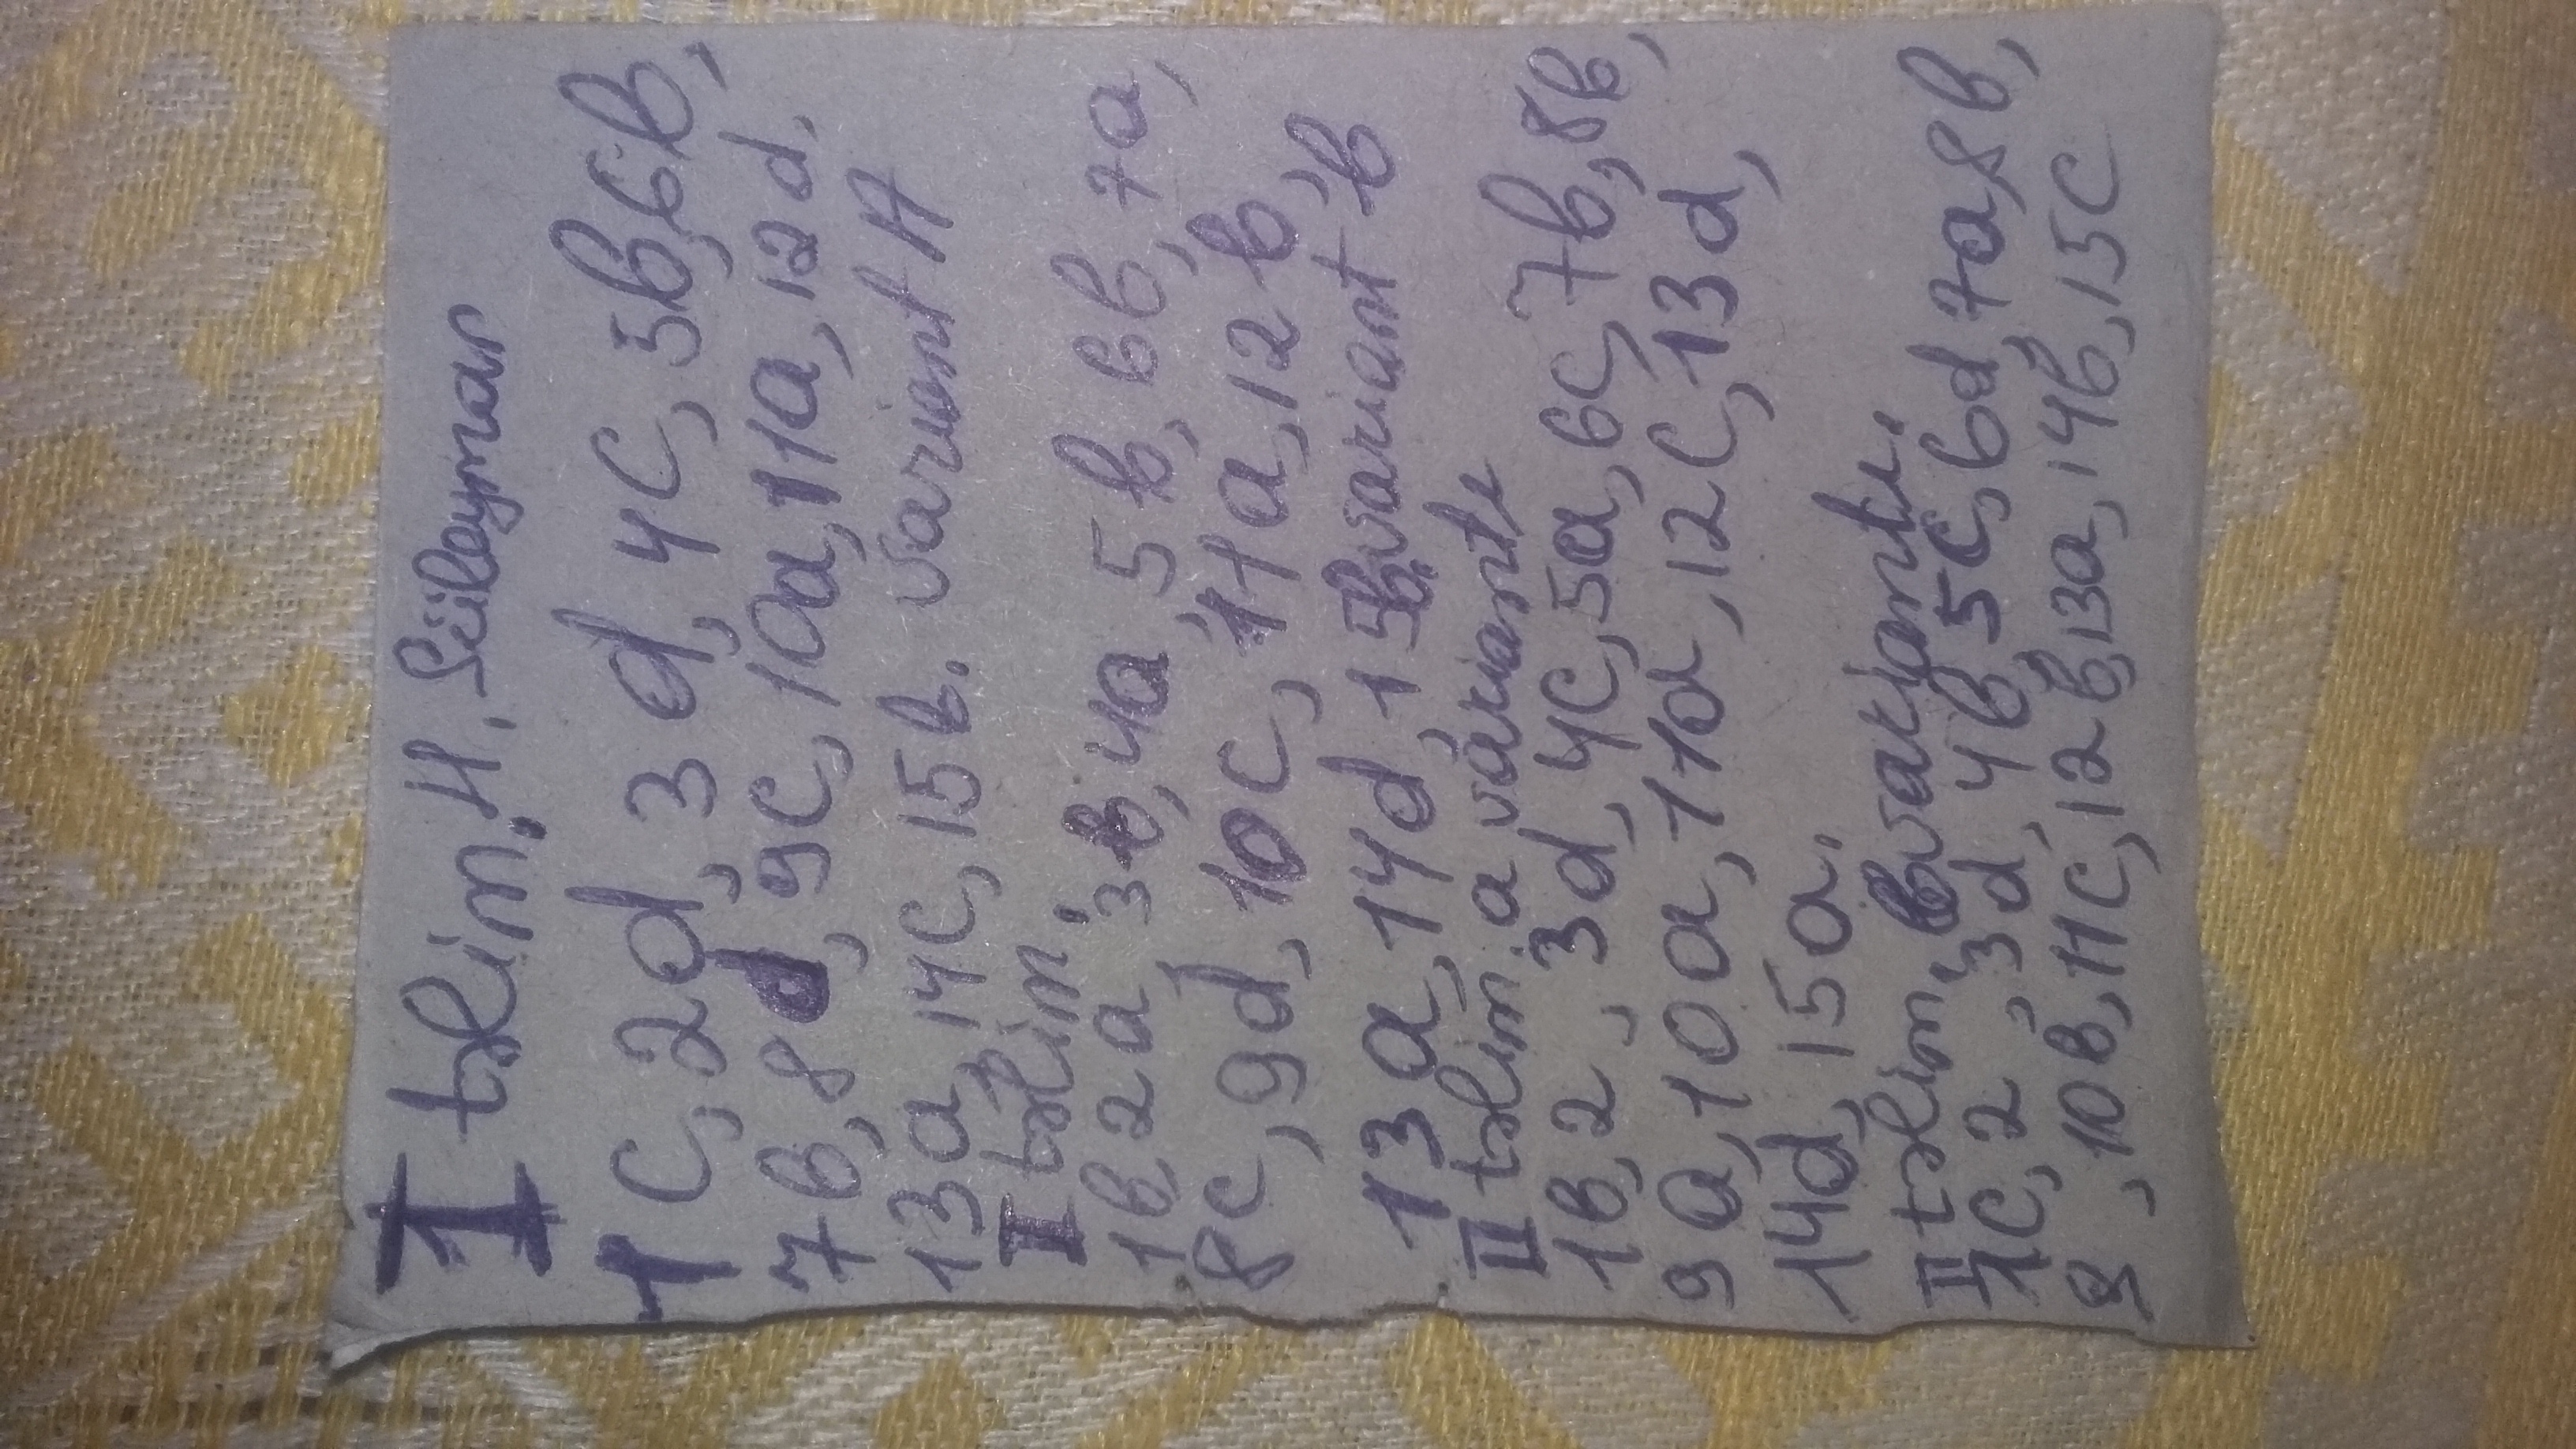 I təlim. H. Süleyman
1 c, 2d, 3 d, 4c, 5b, 6b,
7b, 8d, 9c, 10a, 11a, 12d.
13a, 14c, 15b. variant A
I təlim.
1b, 2a, 3b, 4a, 5b, 6b, 7a,
8c, 9d, 10c, 11a, 12b,
13a, 14d, 15b. variant b
II təlim. a variantı
1b, 2 , 3d, 4c, 5a, 6c, 7b, 8b,
9a, 10a, 11d, 12c, 13d,
14d, 15a.
II təlim. b variantı.
1c, 2 , 3d, 4b, 5c, 6d, 7a, 8b,
9 , 10b, 11c, 12b, 13a, 14b, 15c